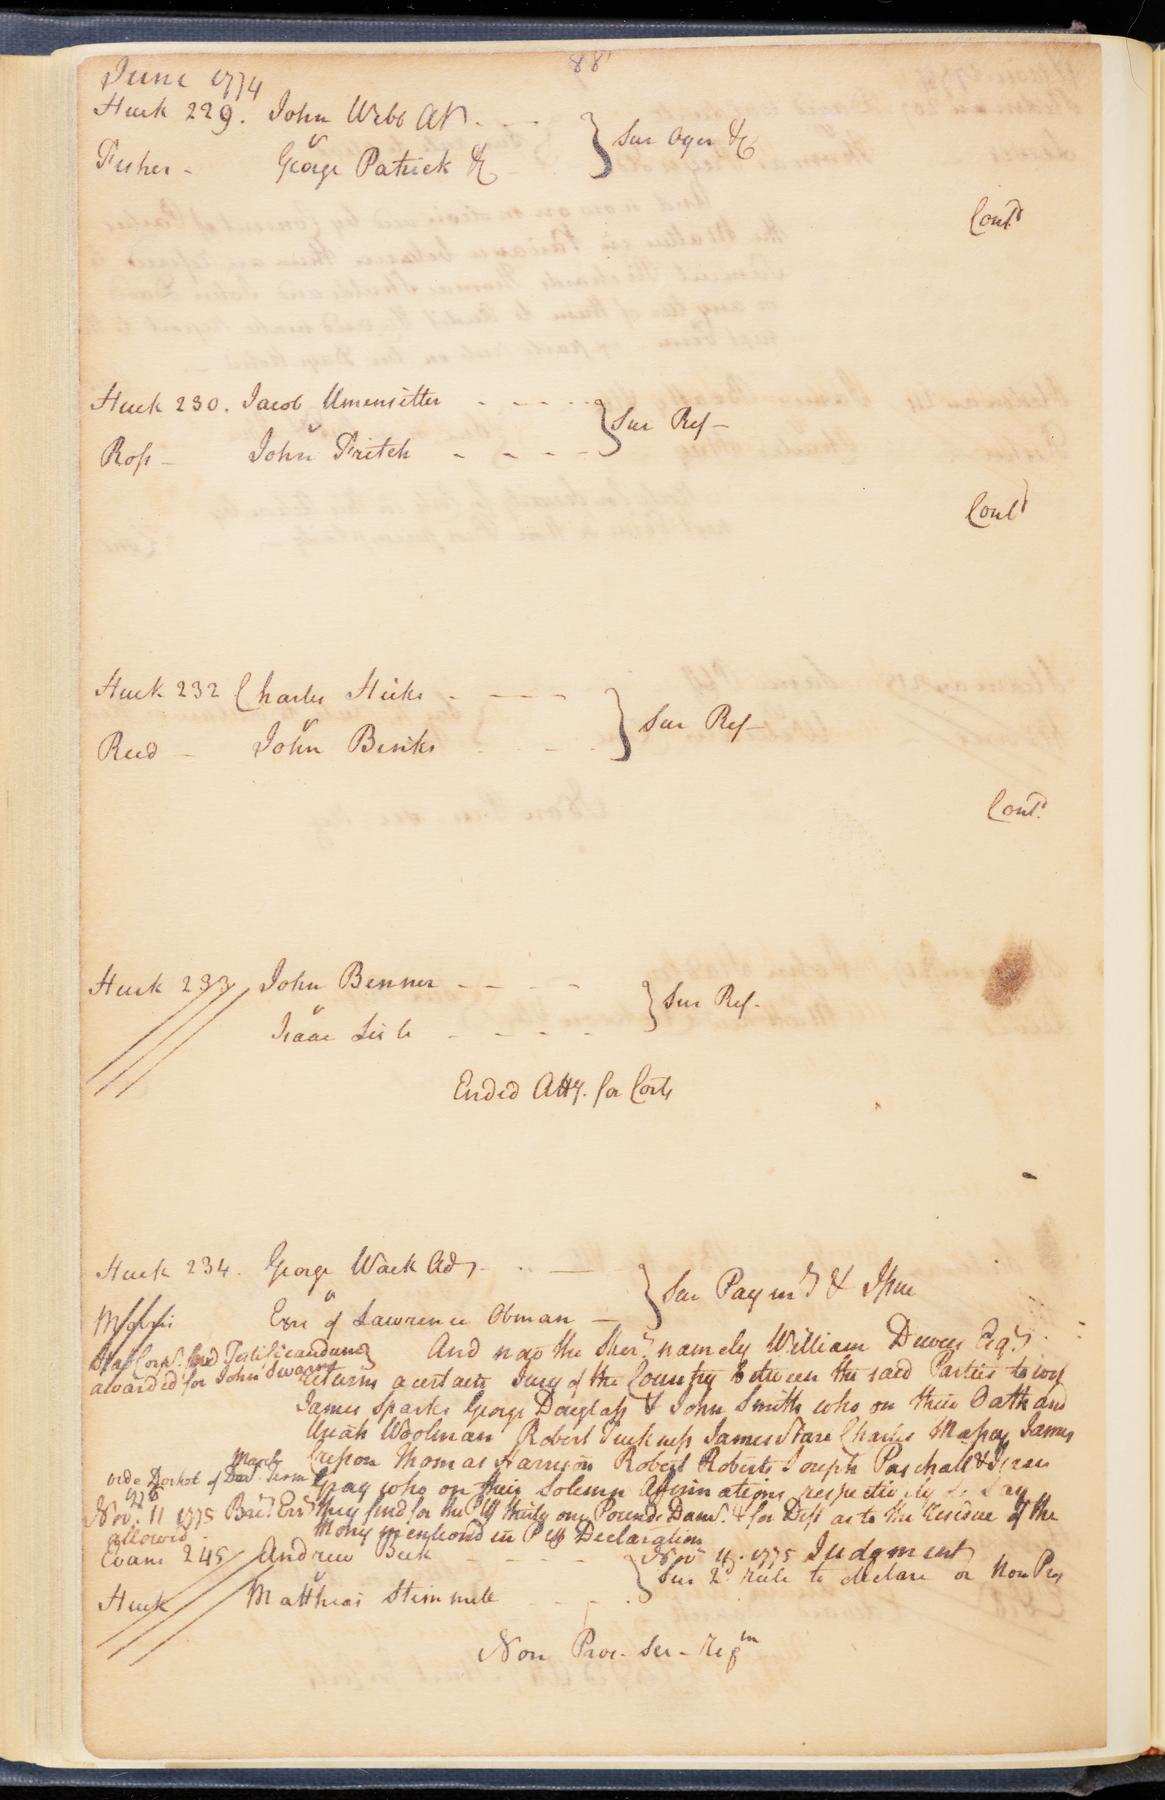 88
June 1774
Huck 229. John Webb Ads. - - -
v
Fisher - George Patrick &c
} Sur Oyer &c
Cont.d
Huck 230. Jacob Umensetter - - - -
v
Ross - John Fritch - - - -
} Sur Ref -
Contd
Huck 232 Charles Hicks - - - -
v
Reed - John Binks
} Sur Ref -
Cont.d
Huck 233 John Benner - - - -
v
Isaac Lisle - - - -
} Sur Ref.
Ended Atty. for Costs
Huck 234. George Wack Ads - - -
v
Morris Exrs of Lawrence Obman -
} Sur Paym.t & Issue
And now the Sher.f namely William Dewees Esq.r
Hab. Corps. ad Testificandum }
awarded for John Swan
returns a certain Jury of the Country between the said Parties to wit
James Sparks George Douglass & John Smith who on their Oath and
Uriah Woolman Robert Tuckness James Stare Charles Massey James
Cresson Thomas Harrison Robert Roberts Joseph Paschall & Isaac
Gray who on their Solemn Affirmations respectively do Say
they find for the Plff thirty one Pounds Dam.s & for Deft as to the residue of the
Mony mentiond in Plffs Declaration
Nov.r 11. 1775 Judgment
vide Docket of March Term
1775
Nov. 11 1775 Bre. Err.
allowed.
Evans 245 Andrew Beck - - - -
v
Huck Matthias Stimmele - - -
} Sur 2.d rule to declare or Non Pros
Non Pros. Sec. Reg.m